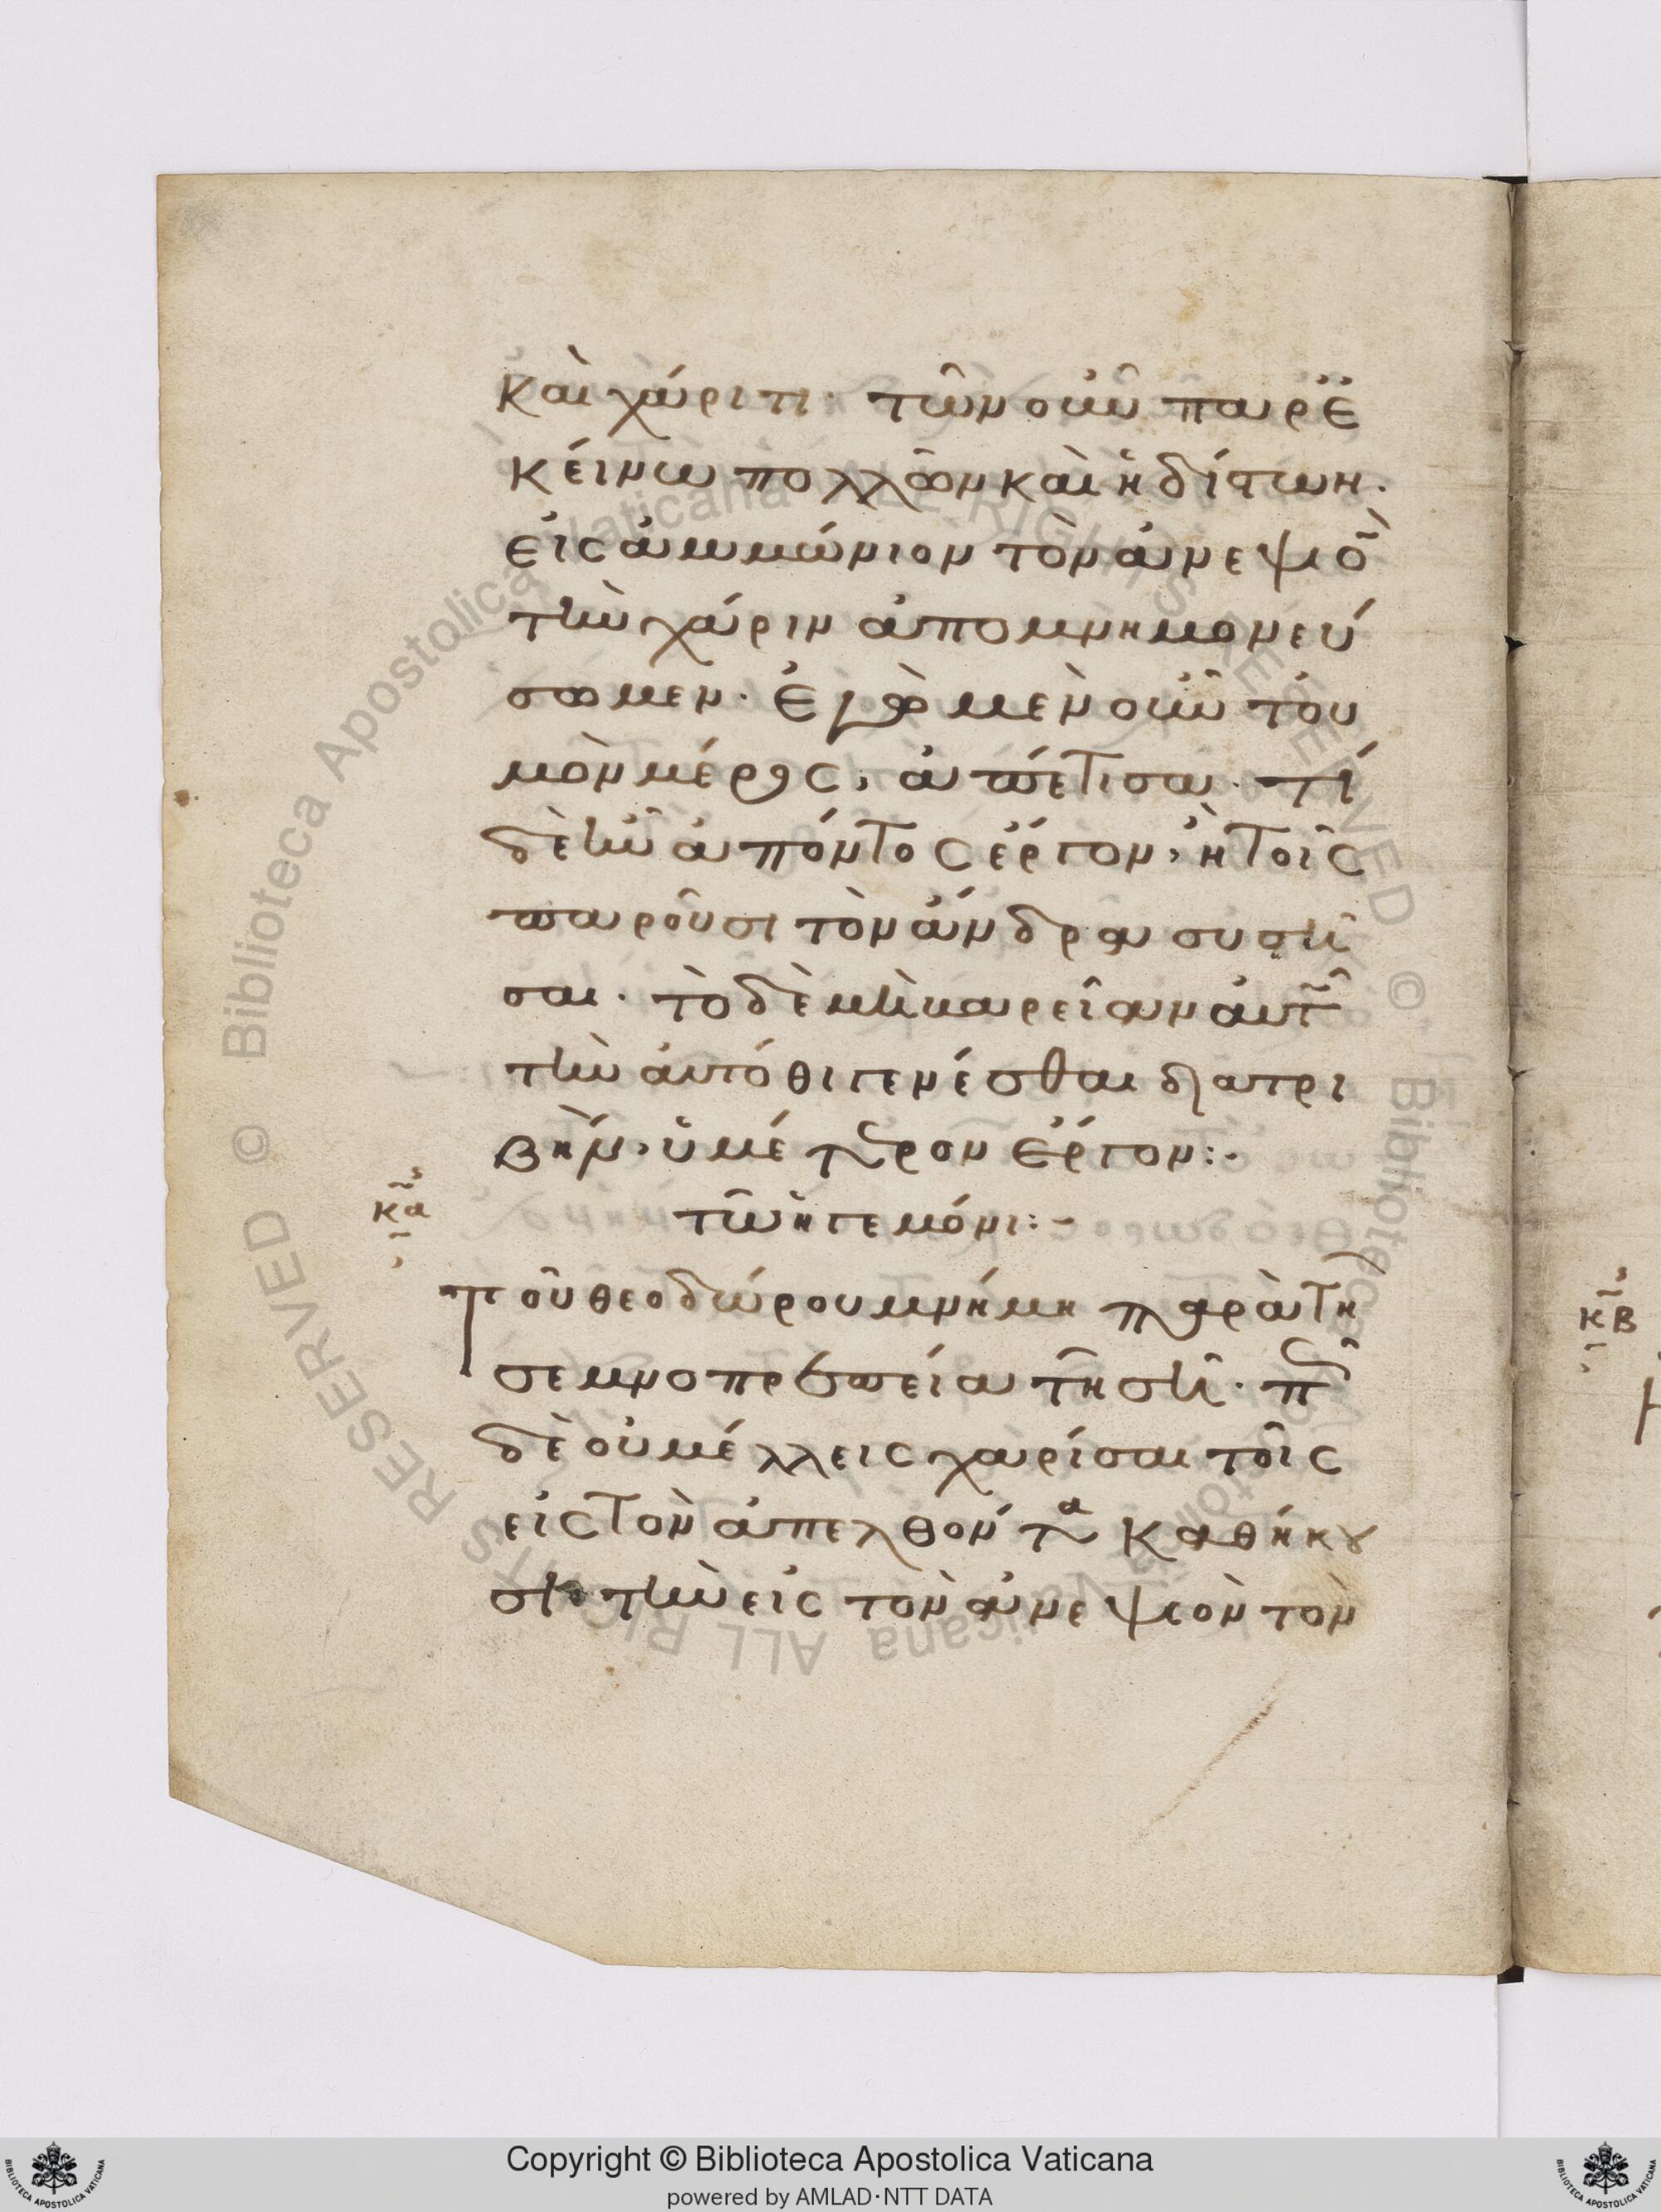 καὶ χάριτι· τῶν οὖν παρ' ἐ
κείνω πολλῶν καὶ ἡδίστων·
εἰς ἀμμώνιον τὸν ἀνεψιὸ̄
τὴν χάριν ἀπομνημονεύ
σωμεν· ἐγὼ μὲν οὖν τοὐ
μὸν μέρος, ἀπέτισα· τί
δὲ ἦν ἀπόντος ἔργον, ἢ τοῖς
παροῦσι τὸν ἄνδρα συστῆ
σαι· τὸ δὲ μὴ μακρὰν αὐτῶ
τὴν αὐτόθι γενέσθαι διατρι
βὴν, ὑμέτερον ἔργον:·
κα
τῶ ἡγεμόνι:-
Τοῦ θεοδώρου μνήμη παρὰ τῆ
σεμνοπρεπεία τῆ σῆ· π
δὲ οὐ μέλλεις χαρίσαι τοῖς
εἰς τὸν ἀπελθόντα καθήκου
σι τὴν εἰς τὸν ἀνεψιὸν τὸν
κβ
Copyright © Biblioteca Apostolica Vaticana
powered by AMLAD·NTT DATA